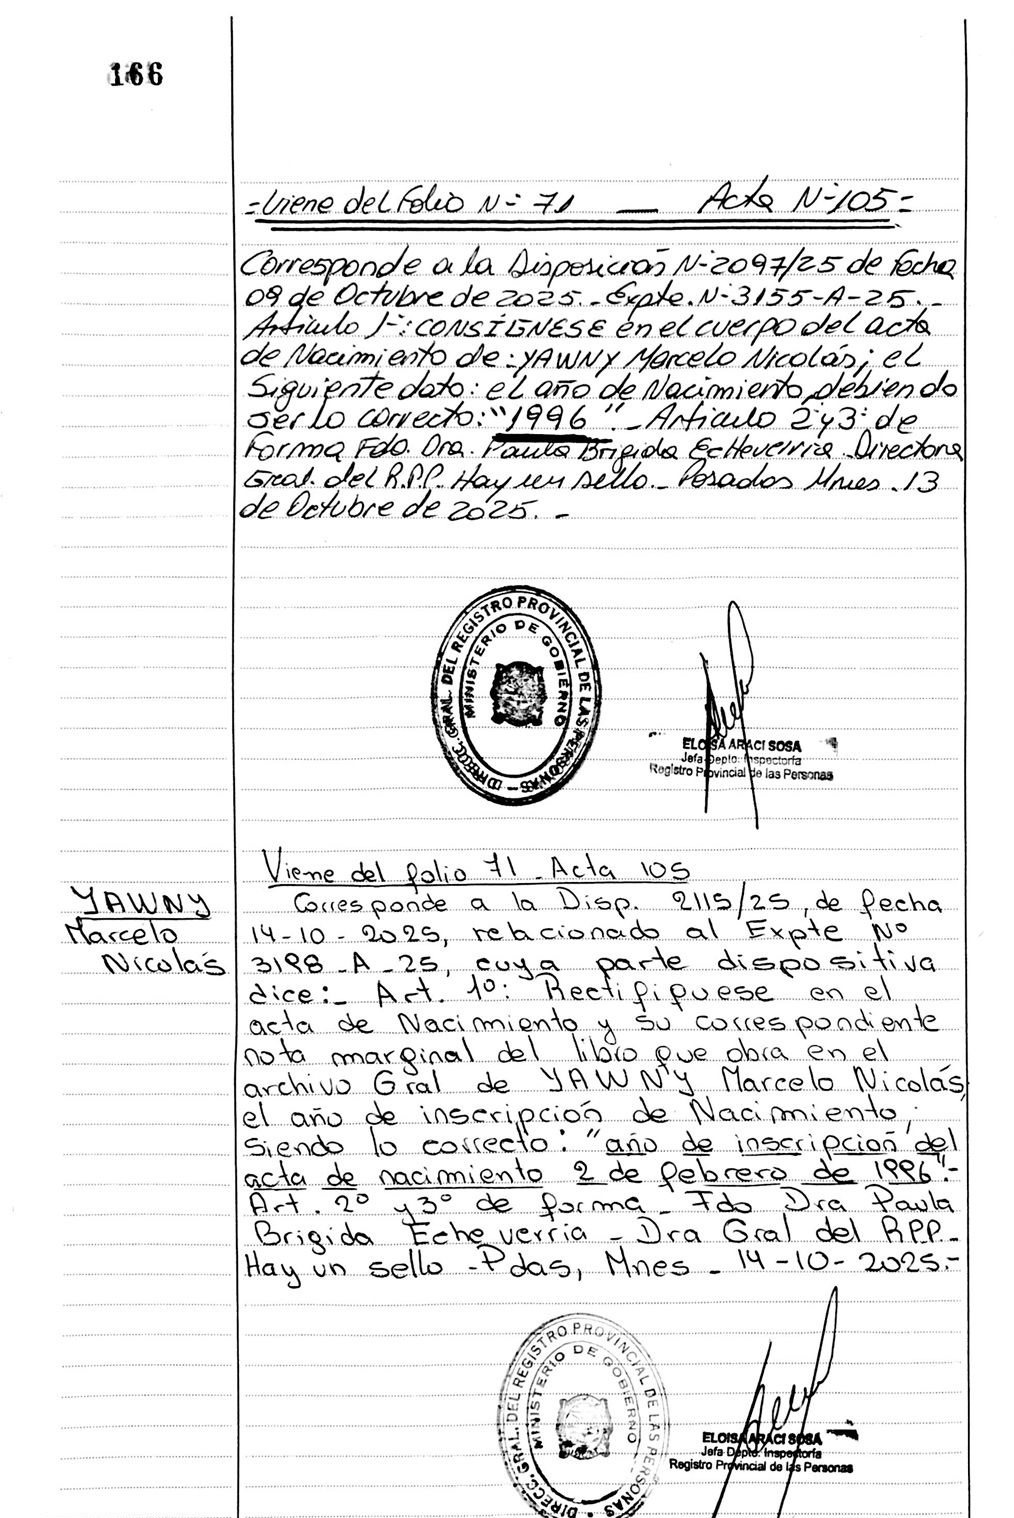 166
=Viene del Folio N-° 71 — Acta N-°105=
Corresponde a la Disposición N-°2097/25 de Fecha
09 de Octubre de 2025.- Expte. N-°3155-A-25.-
Artículo 1-°: CONSÍGNESE en el cuerpo del acta
de Nacimiento de: YAWNY Marcelo Nicolás; el
Siguiente dato: el año de Nacimiento, debiendo
ser lo correcto: "1996".- Artículo 2° y 3° de
Forma Fdo. Dra. Paula Brigida Echeverria. Directora
Gral. del R.P.P. Hay un sello.- Posadas Mnes. 13
de Octubre de 2025.-
DIRECC. GRAL. DEL REGISTRO PROVINCIAL DE LAS PERSONAS
MINISTERIO DE GOBIERNO
ELOISA ARACI SOSA
Jefa Depto. Inspectoría
Registro Provincial de las Personas
Viene del folio 71 - Acta 105
YAWNY
Marcelo
Nicolás
Corresponde a la Disp. 2115/25, de fecha
14-10-2025, relacionado al Expte Nº
3198-A-25, cuya parte dispositiva
dice:- Art. 1º: Rectifiquese en el
acta de Nacimiento y su correspondiente
nota marginal del libro que obra en el
archivo Gral de YAWNY Marcelo Nicolás,
el año de inscripción de Nacimiento,
siendo lo correcto: "año de inscripción del
acta de nacimiento 2 de febrero de 1996".-
Art. 2º y 3º de forma- Fdo Dra Paula
Brigida Echeverria - Dra Gral del RPP.-
Hay un sello -Pdas, Mnes - 14-10-2025.-
DIRECC. GRAL. DEL REGISTRO PROVINCIAL DE LAS PERSONAS
MINISTERIO DE GOBIERNO
ELOISA ARACI SOSA
Jefa Depto. Inspectoría
Registro Provincial de las Personas